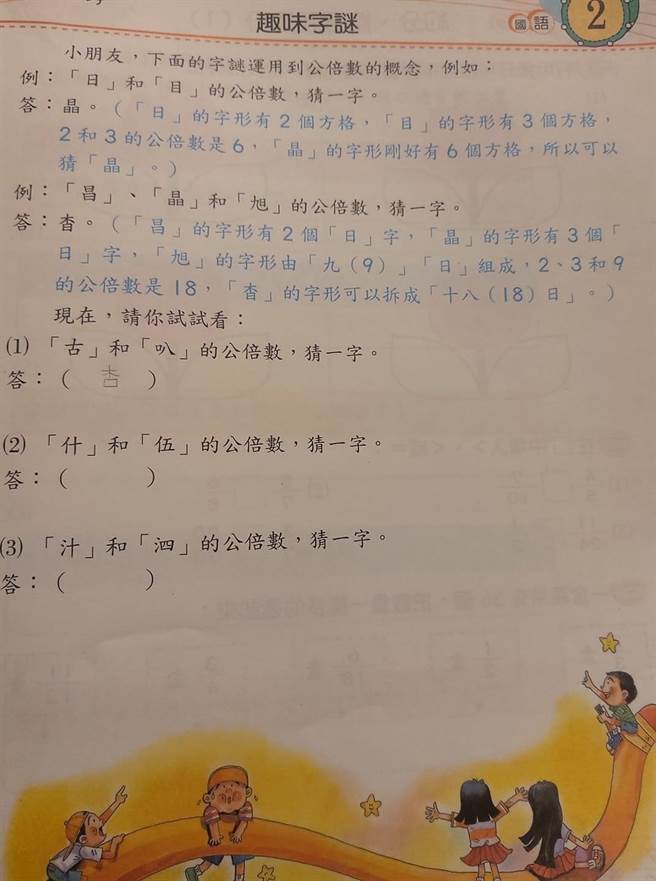 趣味字謎
國語
2
小朋友，下面的字謎運用到公倍數的概念，例如：
例：「日」和「目」的公倍數，猜一字。
答：晶。（「日」的字形有2個方格，「目」的字形有3個方格，
2和3的公倍數是6，「晶」的字形剛好有6個方格，所以可以
猜「晶」。）
例：「昌」、「晶」和「旭」的公倍數，猜一字。
答：杳。（「昌」的字形有2個「日」字，「晶」的字形有3個「
日」字，「旭」的字形由「九（9）」「日」組成，2、3和9
的公倍數是18，「杳」的字形可以拆成「十八（18）日」。）
現在，請你試試看：
(1) 「古」和「叭」的公倍數，猜一字。
答：（ 杏 ）
(2) 「什」和「伍」的公倍數，猜一字。
答：（ ）
(3) 「汁」和「泗」的公倍數，猜一字。
答：（ ）